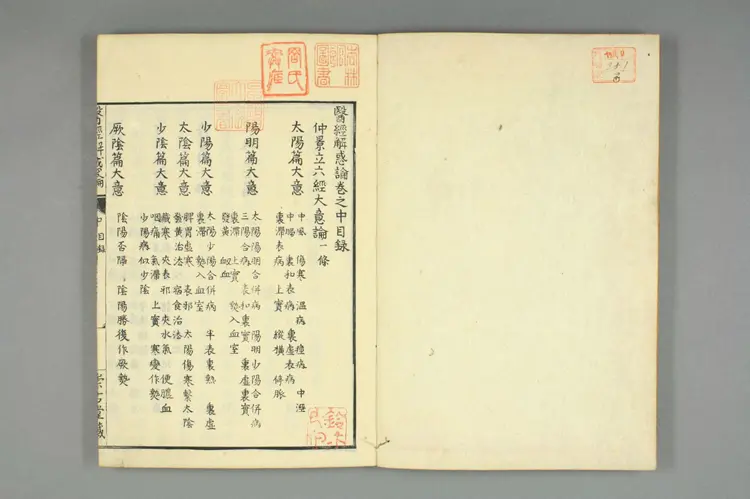 醫經解惑論卷之中目録
仲景立六經大意論一條
太陽篇大意
中風 傷寒 温病 痙病 中濕
中暍 裏和表病 裏虚表病
裏滯表病 上實 縱横 停脈
陽明篇大意
太陽陽明合併病 陽明少陽合併病
三陽合病 表和裏實 裏虚裏實
裏滯 上實 熱入血室
發黄 血
少陽篇大意
太陽少陽合併病 半表裏熱 裏虚
裏滯 熱入血室
太陰篇大意
脾胃虚寒 表邪 太陽傷寒繫太陰
發黄治法 宿食治法
少陰篇大意
寒 夾表邪 夾水氣 便膿血
咽痛 氣滯 上實 寒變作熱
少陽病似少陰
厥陰篇大意
陰陽否隔 陰陽勝復作厥熱
醫經解惑論
中 目録
崇古堂藏